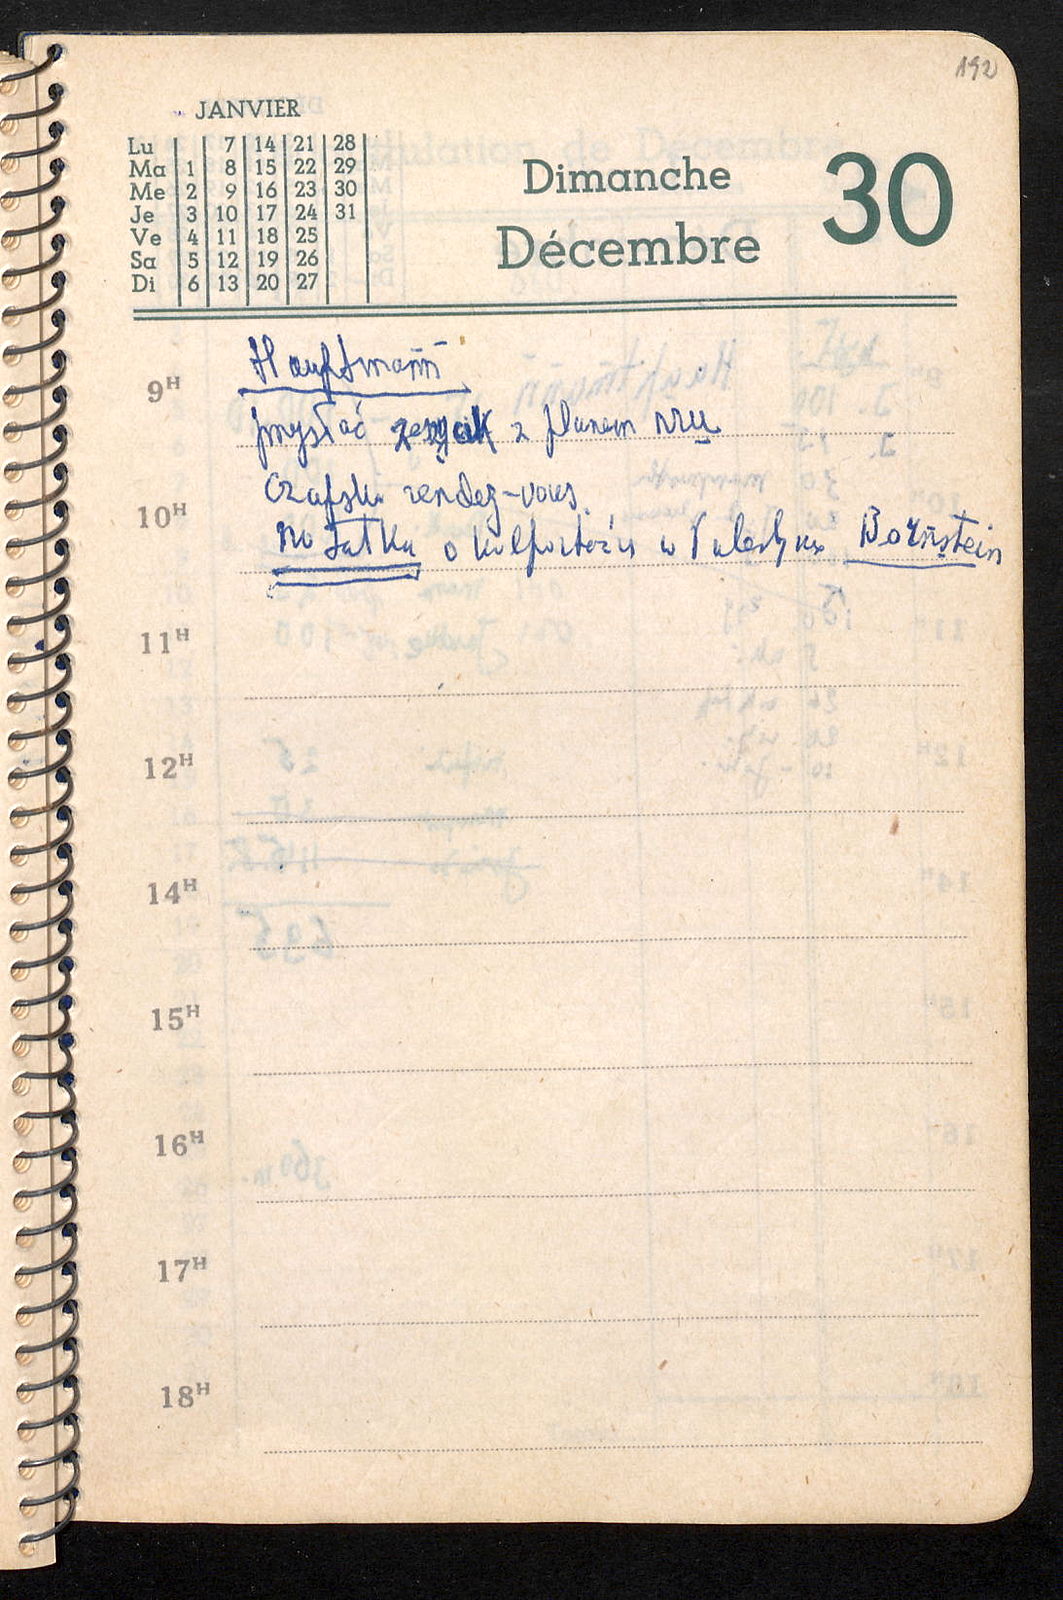 192
JANVIER
Lu 7 14 21 28
Ma 1 8 15 22 29
Me 2 9 16 23 30
Je 3 10 17 24 31
Ve 4 11 18 25
Sa 5 12 19 26
Di 6 13 20 27
Dimanche 30
Décembre
Hauptmann
9H
z planem nru
10H
rendez-vous
Notatka o w Palestynie Bornstein
11H
12H
14H
15H
16H
17H
18H